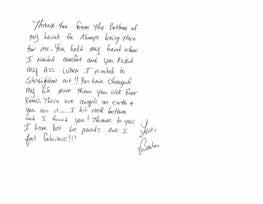 Thank-You from the Bottom of
my heart for Always being there
for me. You held my hand when
I needed comfort and you kicked
my Ass when I needed to
straighten out!! You have changed
my life more than you will Ever
know. There are angels on earth +
you are it..... I hit rock bottom
and I found you! Thanks to you
I have lost lbs pounds and I
feel fabulous!!!
Love